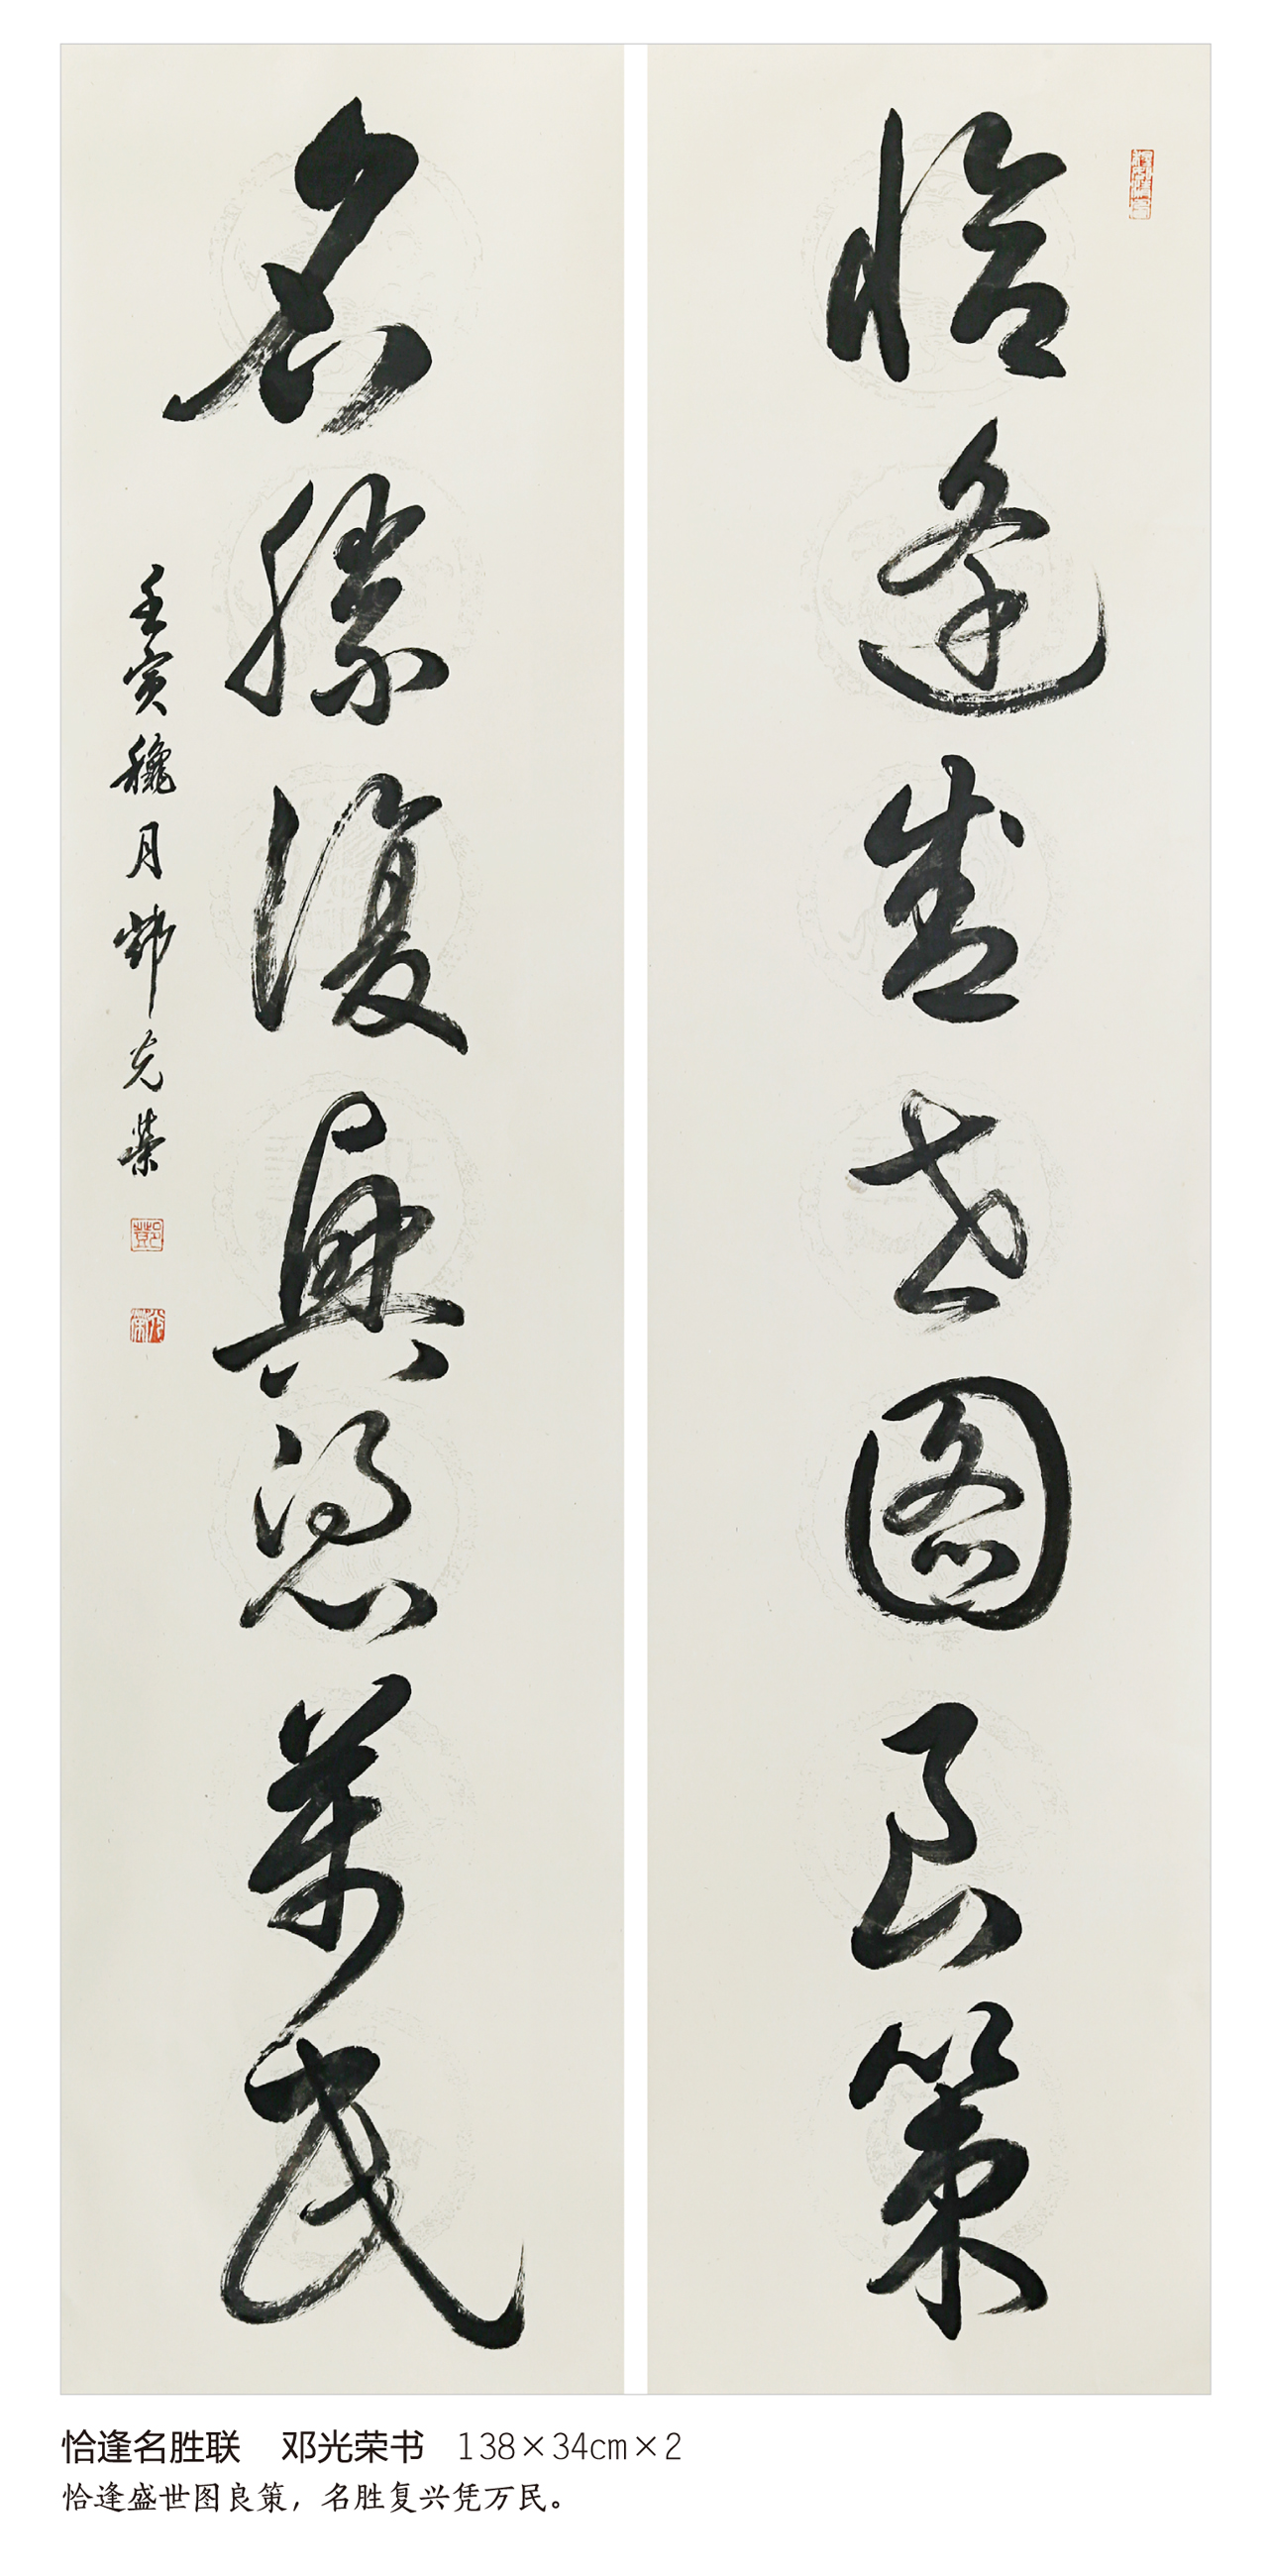 恰逢盛世图良策
名勝復興凴萬民
壬寅龝月鄧光榮
恰逢名胜联 邓光荣书 138×34cm×2
恰逢盛世图良策，名胜复兴凭万民。